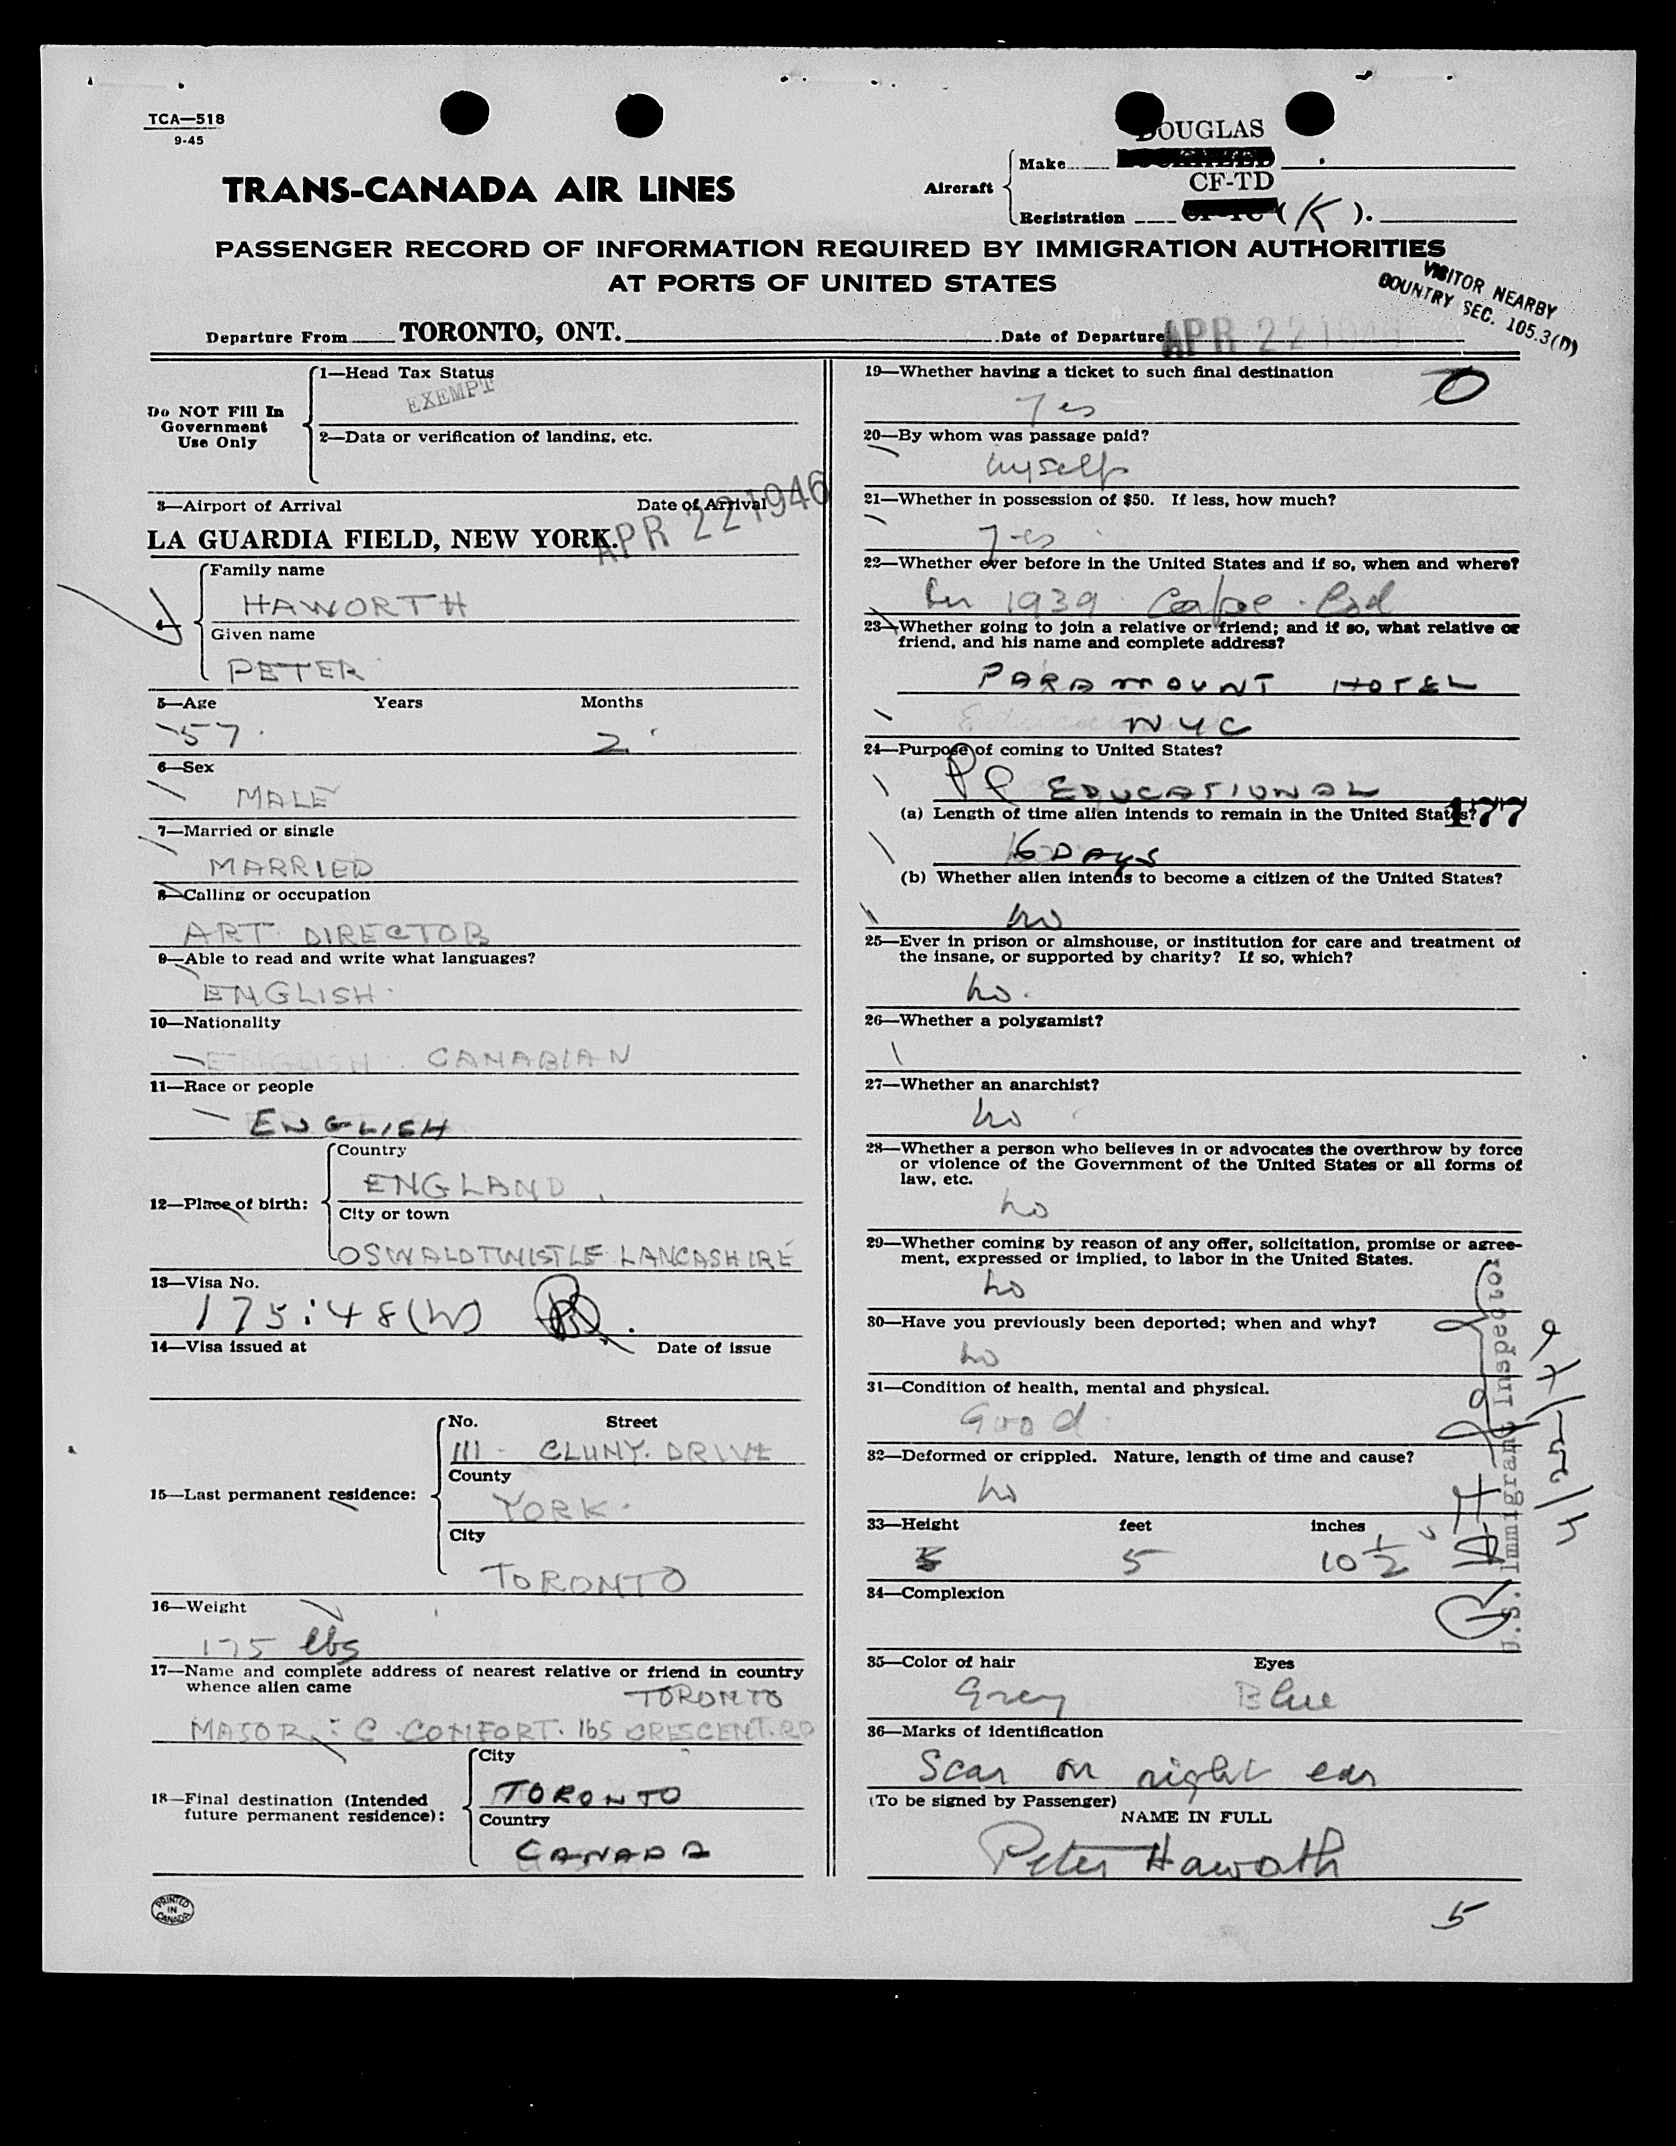 TCA—518
9-45
DOUGLAS
TRANS-CANADA AIR LINES
Aircraft
Make
CF-TD
Registration (K).
PASSENGER RECORD OF INFORMATION REQUIRED BY IMMIGRATION AUTHORITIES
AT PORTS OF UNITED STATES
VISITOR NEARBY
COUNTRY SEC. 105.3(D)
Departure From TORONTO, ONT. Date of Departure APR 22 1946
Do NOT Fill In
Government
Use Only
1—Head Tax Status
EXEMPT
2—Data or verification of landing, etc.
3—Airport of Arrival Date of Arrival
LA GUARDIA FIELD, NEW YORK. APR 22 1946
Family name
HAWORTH
Given name
PETER
5—Age Years Months
57 2
6—Sex
MALE
7—Married or single
MARRIED
8—Calling or occupation
ART DIRECTOR
9—Able to read and write what languages?
ENGLISH
10—Nationality
ENGLISH. CANADIAN
11—Race or people
ENGLISH
12—Place of birth:
Country
ENGLAND
City or town
OSWALDTWISTLE LANCASHIRE
13—Visa No.
175:48(W)
14—Visa issued at Date of issue
15—Last permanent residence:
No. Street
111 - CLUNY. DRIVE
County
YORK.
City
TORONTO
16—Weight
175 lbs
17—Name and complete address of nearest relative or friend in country
whence alien came
TORONTO
MAJOR C COMFORT. 165 CRESCENT. RD
18—Final destination (Intended
future permanent residence):
City
TORONTO
Country
CANADA
PRINTED
IN
CANADA
19—Whether having a ticket to such final destination
Yes
20—By whom was passage paid?
Myself
21—Whether in possession of $50. If less, how much?
Yes
22—Whether ever before in the United States and if so, when and where?
In 1939. Cape Cod
23—Whether going to join a relative or friend; and if so, what relative or
friend, and his name and complete address?
PARAMOUNT HOTEL
NYC
24—Purpose of coming to United States?
EDUCATIONAL
(a) Length of time alien intends to remain in the United States?
177
6 DAYS
(b) Whether alien intends to become a citizen of the United States?
no
25—Ever in prison or almshouse, or institution for care and treatment of
the insane, or supported by charity? If so, which?
no.
26—Whether a polygamist?
27—Whether an anarchist?
no
28—Whether a person who believes in or advocates the overthrow by force
or violence of the Government of the United States or all forms of
law, etc.
no
29—Whether coming by reason of any offer, solicitation, promise or agree-
ment, expressed or implied, to labor in the United States.
no
30—Have you previously been deported; when and why?
no
31—Condition of health, mental and physical.
Good
32—Deformed or crippled. Nature, length of time and cause?
no
33—Height feet inches
5 5 10 1/2
U.S. Immigrant Inspector
34—Complexion
35—Color of hair Eyes
Grey Blue
36—Marks of identification
Scar on right ear
(To be signed by Passenger)
NAME IN FULL
Peter Haworth
5